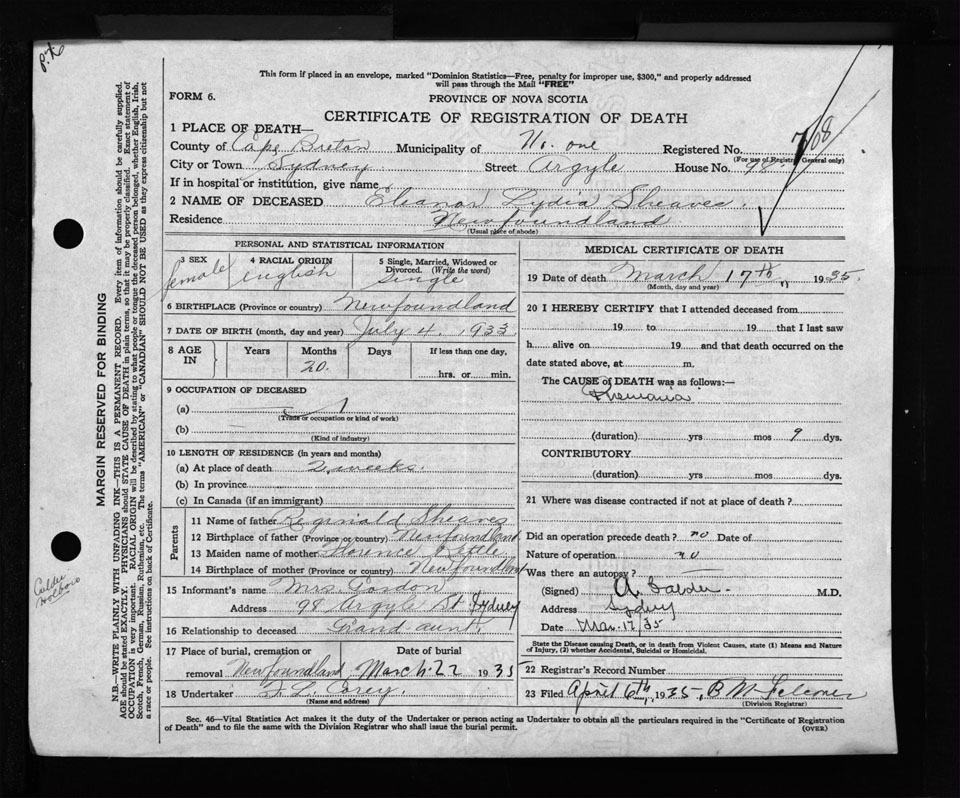 This form if placed in an envelope, marked "Dominion Statistics—Free, penalty for improper use, $300," and properly addressed
will pass through the Mail "FREE"
FORM 6.
PROVINCE OF NOVA SCOTIA
CERTIFICATE OF REGISTRATION OF DEATH
1 PLACE OF DEATH—
County of Cape Breton Municipality of No. one Registered No.
(For use of Registrar General only)
City or Town Sydney Street Argyle House No. 98
If in hospital or institution, give name
2 NAME OF DECEASED Eleanor Lydia Sheaves.
Residence Newfoundland
(Usual place of abode)
PERSONAL AND STATISTICAL INFORMATION
3 SEX female
4 RACIAL ORIGIN english
5 Single, Married, Widowed or Divorced. (Write the word) Single
6 BIRTHPLACE (Province or country) Newfoundland
7 DATE OF BIRTH (month, day and year) July 4. 1933
8 AGE IN Years Months Days If less than one day,
20. hrs. or min.
9 OCCUPATION OF DECEASED
(a)
(Trade or occupation or kind of work)
(b)
(Kind of industry)
10 LENGTH OF RESIDENCE (in years and months)
(a) At place of death 2 weeks.
(b) In province
(c) In Canada (if an immigrant)
Parents
11 Name of father Reginald Sheaves
12 Birthplace of father (Province or country) Newfoundland
13 Maiden name of mother Florence
14 Birthplace of mother (Province or country) Newfoundland
15 Informant's name Mrs. Gordon
Address 98 Argyle St. Sydney
16 Relationship to deceased Grand-aunt.
17 Place of burial, cremation or removal Newfoundland
Date of burial March 22 1935
18 Undertaker Corey.
(Name and address)
MEDICAL CERTIFICATE OF DEATH
19 Date of death March 17th 1935.
(Month, day and year)
20 I HEREBY CERTIFY that I attended deceased from
19 to 19 that I last saw
h alive on 19 and that death occurred on the
date stated above, at m.
The CAUSE of DEATH was as follows:—
(duration) yrs mos 9 dys.
CONTRIBUTORY
(duration) yrs mos dys.
21 Where was disease contracted if not at place of death?
Did an operation precede death? no Date of
Nature of operation no
Was there an autopsy?
(Signed) A. Calder. M.D.
Address Sydney
Date Mar. 17/35
State the Disease causing Death, or in death from Violent Causes, state (1) Means and Nature
of Injury, (2) whether Accidental, Suicidal or Homicidal.
22 Registrar's Record Number
23 Filed April 6th, 1935, B M Falconer
(Division Registrar)
Sec. 46—Vital Statistics Act makes it the duty of the Undertaker or person acting as Undertaker to obtain all the particulars required in the "Certificate of Registration
of Death" and to file the same with the Division Registrar who shall issue the burial permit.
(OVER)
MARGIN RESERVED FOR BINDING
N.B.—WRITE PLAINLY WITH UNFADING INK—THIS IS A PERMANENT RECORD. Every item of information should be carefully supplied.
AGE should be stated EXACTLY. PHYSICIANS should STATE CAUSE OF DEATH in plain terms, so that it may be properly classified. Exact statement of
OCCUPATION is very important. RACIAL ORIGIN will be described by stating to what people or tongue the deceased person belonged, whether English, Irish,
Scotch, French, German, Russian, Ruthenian, etc. The terms "AMERICAN" or "CANADIAN" SHOULD NOT BE USED as they express citizenship but not
a race or people. See instructions on back of Certificate.